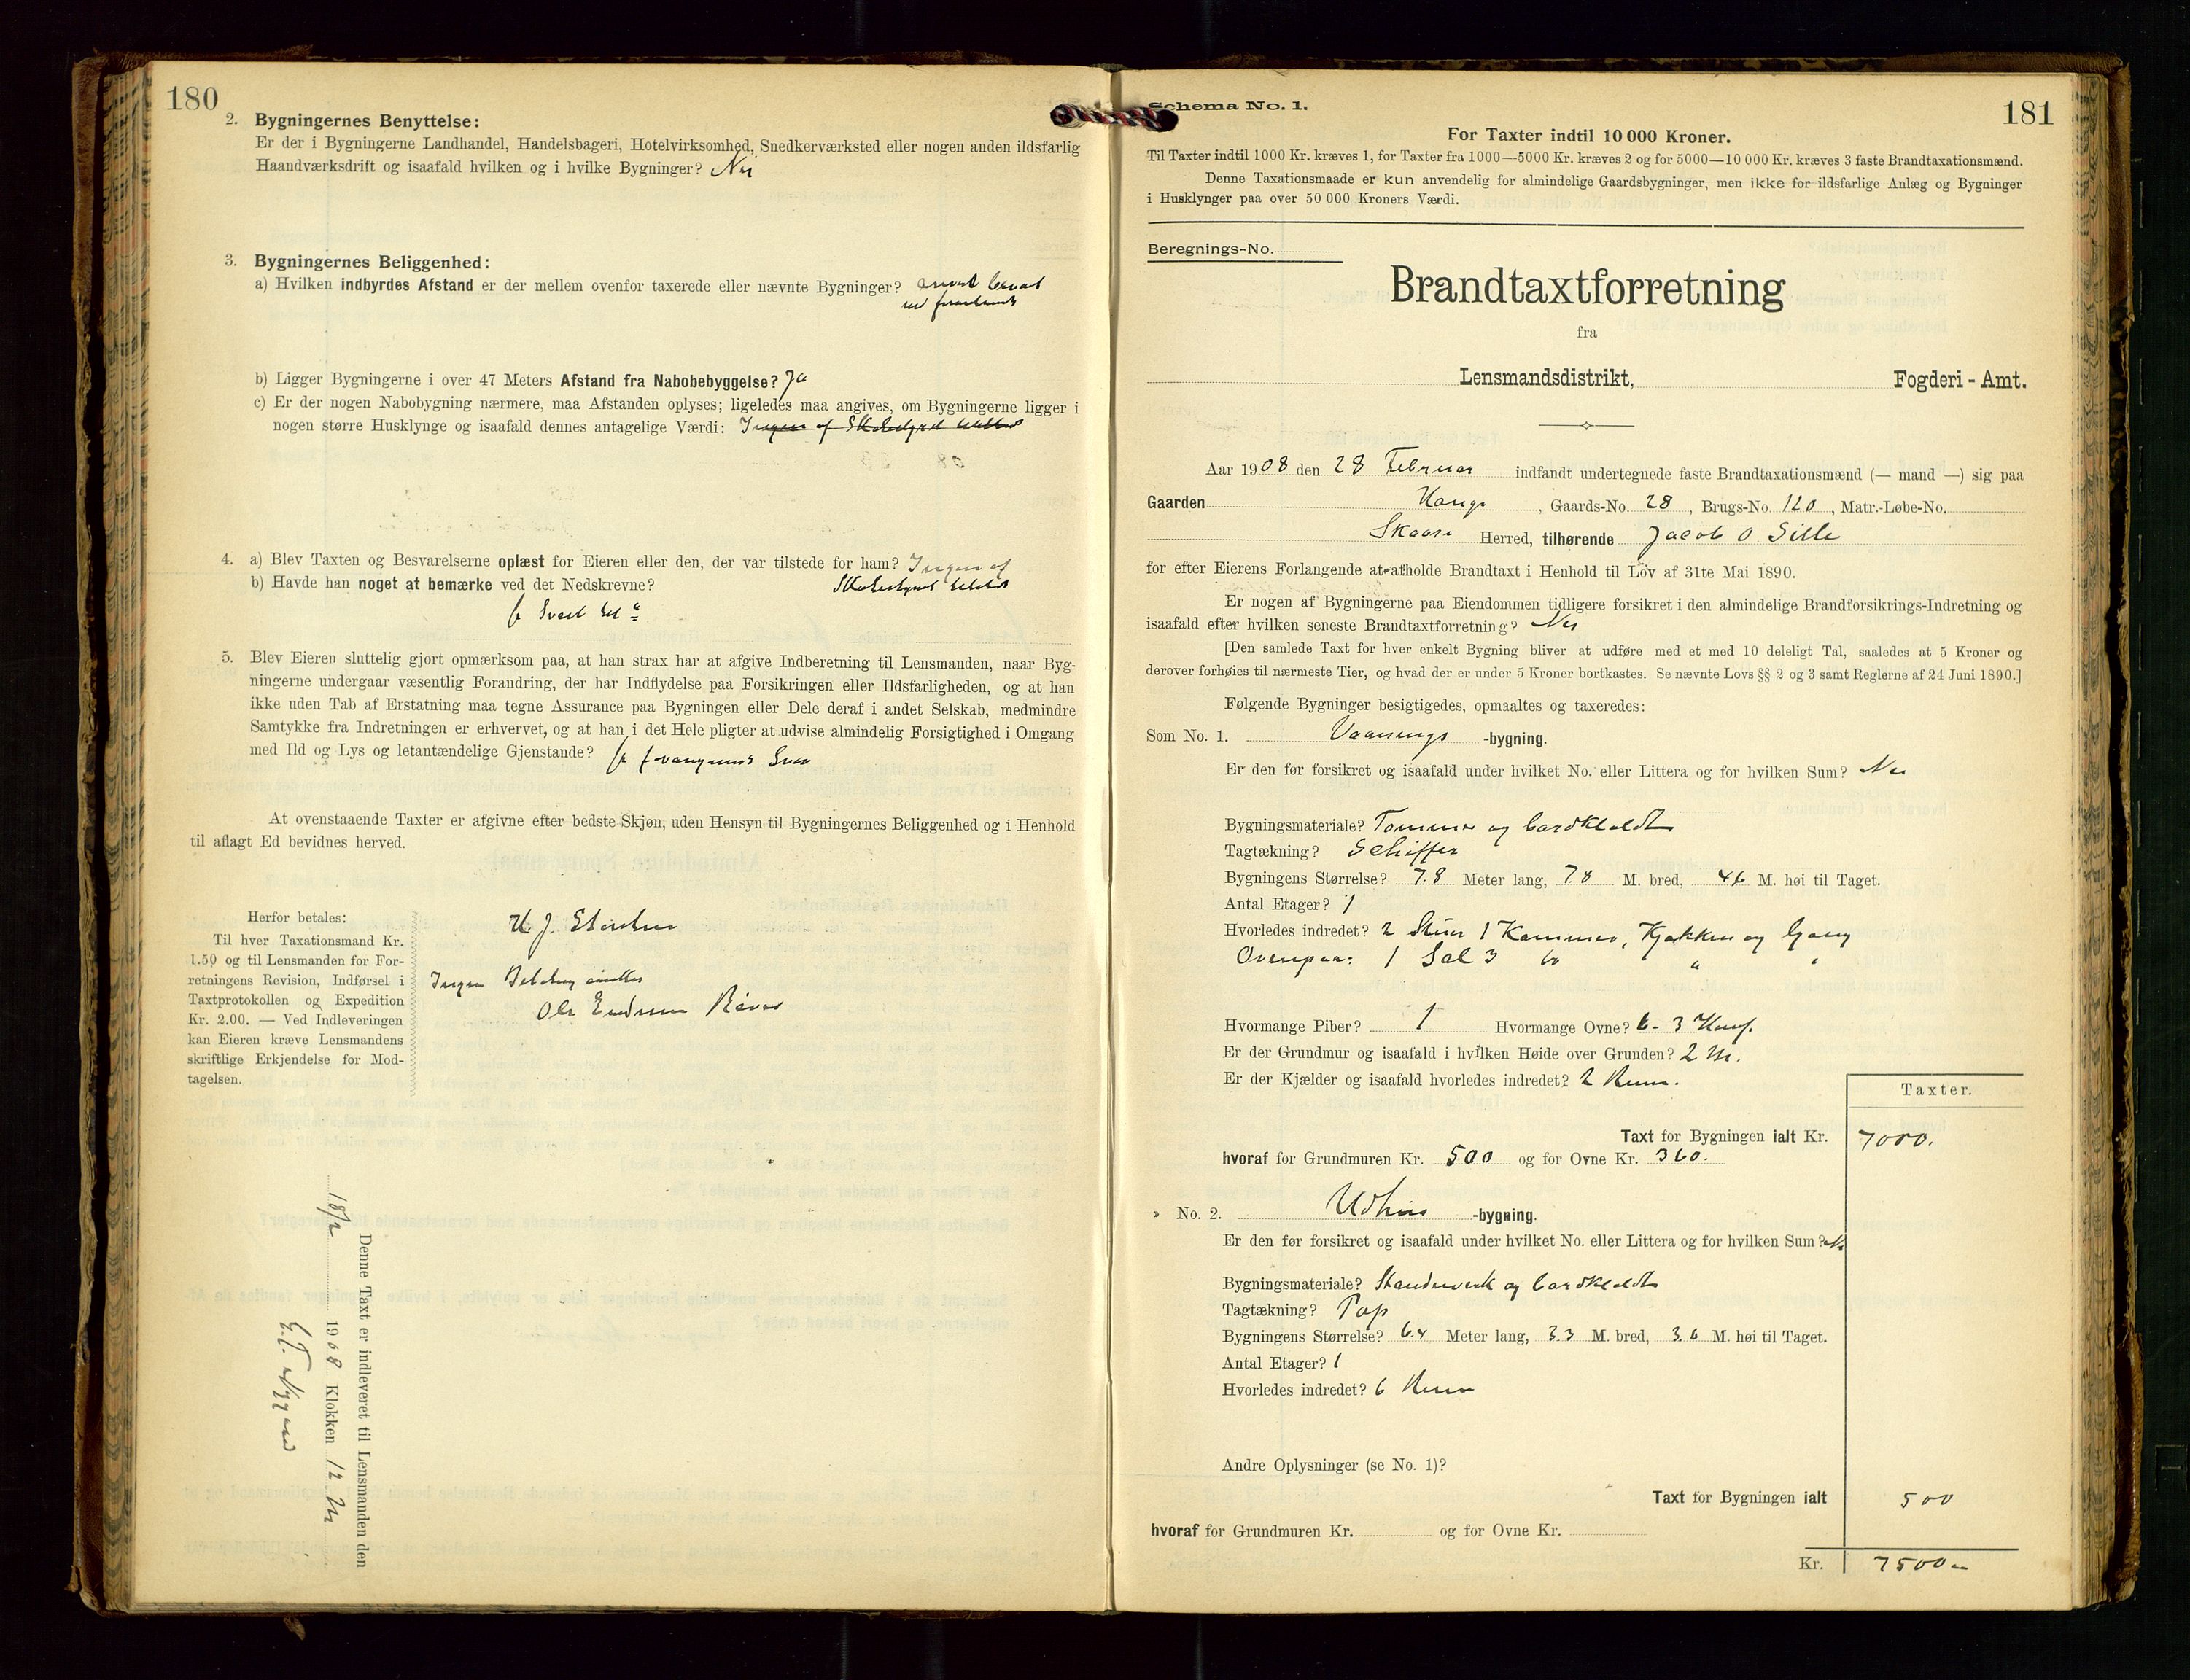 180
2. Bygningernes Benyttelse:
Er der i Bygningerne Landhandel, Handelsbageri, Hotelvirksomhed, Snedkerværksted eller nogen anden ildsfarlig
Haandværksdrift og isaafald hvilken og i hvilke Bygninger? Nei
3. Bygningernes Beliggenhed:
a) Hvilken indbyrdes Afstand er der mellem ovenfor taxerede eller nævnte Bygninger?
b) Ligger Bygningerne i over 47 Meters Afstand fra Nabobebyggelse? Ja
c) Er der nogen Nabobygning nærmere, maa Afstanden oplyses; ligeledes maa angives, om Bygningerne ligger i
nogen større Husklynge og isaafald dennes antagelige Værdi: Ingen af
4. a) Blev Taxten og Besvarelserne oplæst for Eieren eller den, der var tilstede for ham? Ingen af
b) Havde han noget at bemærke ved det Nedskrevne?
5. Blev Eieren sluttelig gjort opmærksom paa, at han strax har at afgive Indberetning til Lensmanden, naar Byg-
ningerne undergaar væsentlig Forandring, der har Indflydelse paa Forsikringen eller Ildsfarligheden, og at han
ikke uden Tab af Erstatning maa tegne Assurance paa Bygningen eller Dele deraf i andet Selskab, medmindre
Samtykke fra Indretningen er erhvervet, og at han i det Hele pligter at udvise almindelig Forsigtighed i Omgang
med Ild og Lys og letantændelige Gjenstande?
At ovenstaaende Taxter er afgivne efter bedste Skjøn, uden Hensyn til Bygningernes Beliggenhed og i Henhold
til aflagt Ed bevidnes herved.
Herfor betales:
Til hver Taxationsmand Kr.
1.50 og til Lensmanden for For-
retningens Revision, Indførsel i
Taxtprotokollen og Expedition
Kr. 2.00. — Ved Indleveringen
kan Eieren kræve Lensmandens
skriftlige Erkjendelse for Mod-
tagelsen.
Denne Taxt er indleveret til Lensmanden den
1908 Klokken 12
Schema No. 1.
181
For Taxter indtil 10 000 Kroner.
Til Taxter indtil 1000 Kr. kræves 1, for Taxter fra 1000—5000 Kr. kræves 2 og for 5000—10 000 Kr. kræves 3 faste Brandtaxationsmænd.
Denne Taxationsmaade er kun anvendelig for almindelige Gaardsbygninger, men ikke for ildsfarlige Anlæg og Bygninger
i Husklynger paa over 50 000 Kroners Værdi.
Beregnings-No.
Brandtaxtforretning
fra
Lensmandsdistrikt, Fogderi - Amt.
Aar 1908 den 28 Februar indfandt undertegnede faste Brandtaxationsmænd (— mand —) sig paa
Gaarden Hauge, Gaards-No. 28, Brugs-No. 120, Matr.-Løbe-No.
Skaare Herred, tilhørende Jacob O.
for efter Eierens Forlangende at afholde Brandtaxt i Henhold til Lov af 31te Mai 1890.
Er nogen af Bygningerne paa Eiendommen tidligere forsikret i den almindelige Brandforsikrings-Indretning og
isaafald efter hvilken seneste Brandtaxtforretning? Nei
[Den samlede Taxt for hver enkelt Bygning bliver at udføre med et med 10 deleligt Tal, saaledes at 5 Kroner og
derover forhøies til nærmeste Tier, og hvad der er under 5 Kroner bortkastes. Se nævnte Lovs §§ 2 og 3 samt Reglerne af 24 Juni 1890.]
Følgende Bygninger besigtigedes, opmaaltes og taxeredes:
Som No. 1. Vaanings -bygning.
Er den før forsikret og isaafald under hvilket No. eller Littera og for hvilken Sum? Nei
Bygningsmateriale? Tømmer og bordklædt
Tagtækning? Schiffer
Bygningens Størrelse? 7.8 Meter lang, 7.8 M. bred, 4.6 M. høi til Taget.
Antal Etager? 1
Hvorledes indredet? 2 Stuer 1 Kammer, Kjøkken og Gang
Ovenpaa: 1 Sal 3
Hvormange Piber? 1 Hvormange Ovne? 6 - 3
Er der Grundmur og isaafald i hvilken Høide over Grunden? 2 M.
Er der Kjælder og isaafald hvorledes indredet? 2 Rum.
Taxter.
Taxt for Bygningen ialt Kr. 7000.
hvoraf for Grundmuren Kr. 500 og for Ovne Kr. 360.
» No. 2. Udhus -bygning.
Er den før forsikret og isaafald under hvilket No. eller Littera og for hvilken Sum? Nei
Bygningsmateriale? Standerverk og bordklædt
Tagtækning? Pap
Bygningens Størrelse? 6.4 Meter lang, 3.3 M. bred, 3.6 M. høi til Taget.
Antal Etager? 1
Hvorledes indredet? 6 Rum
Andre Oplysninger (se No. 1)?
Taxt for Bygningen ialt 500
hvoraf for Grundmuren Kr. og for Ovne Kr.
Kr. 7500